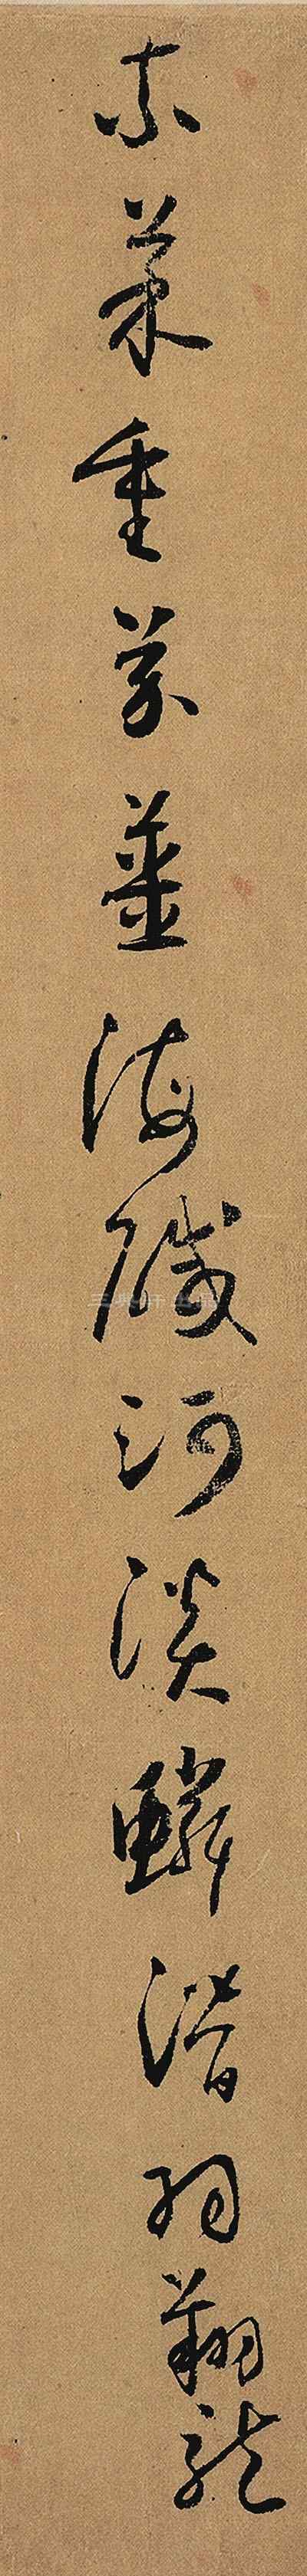 柰菜重芥薑海醎河淡鱗潛羽翔龍